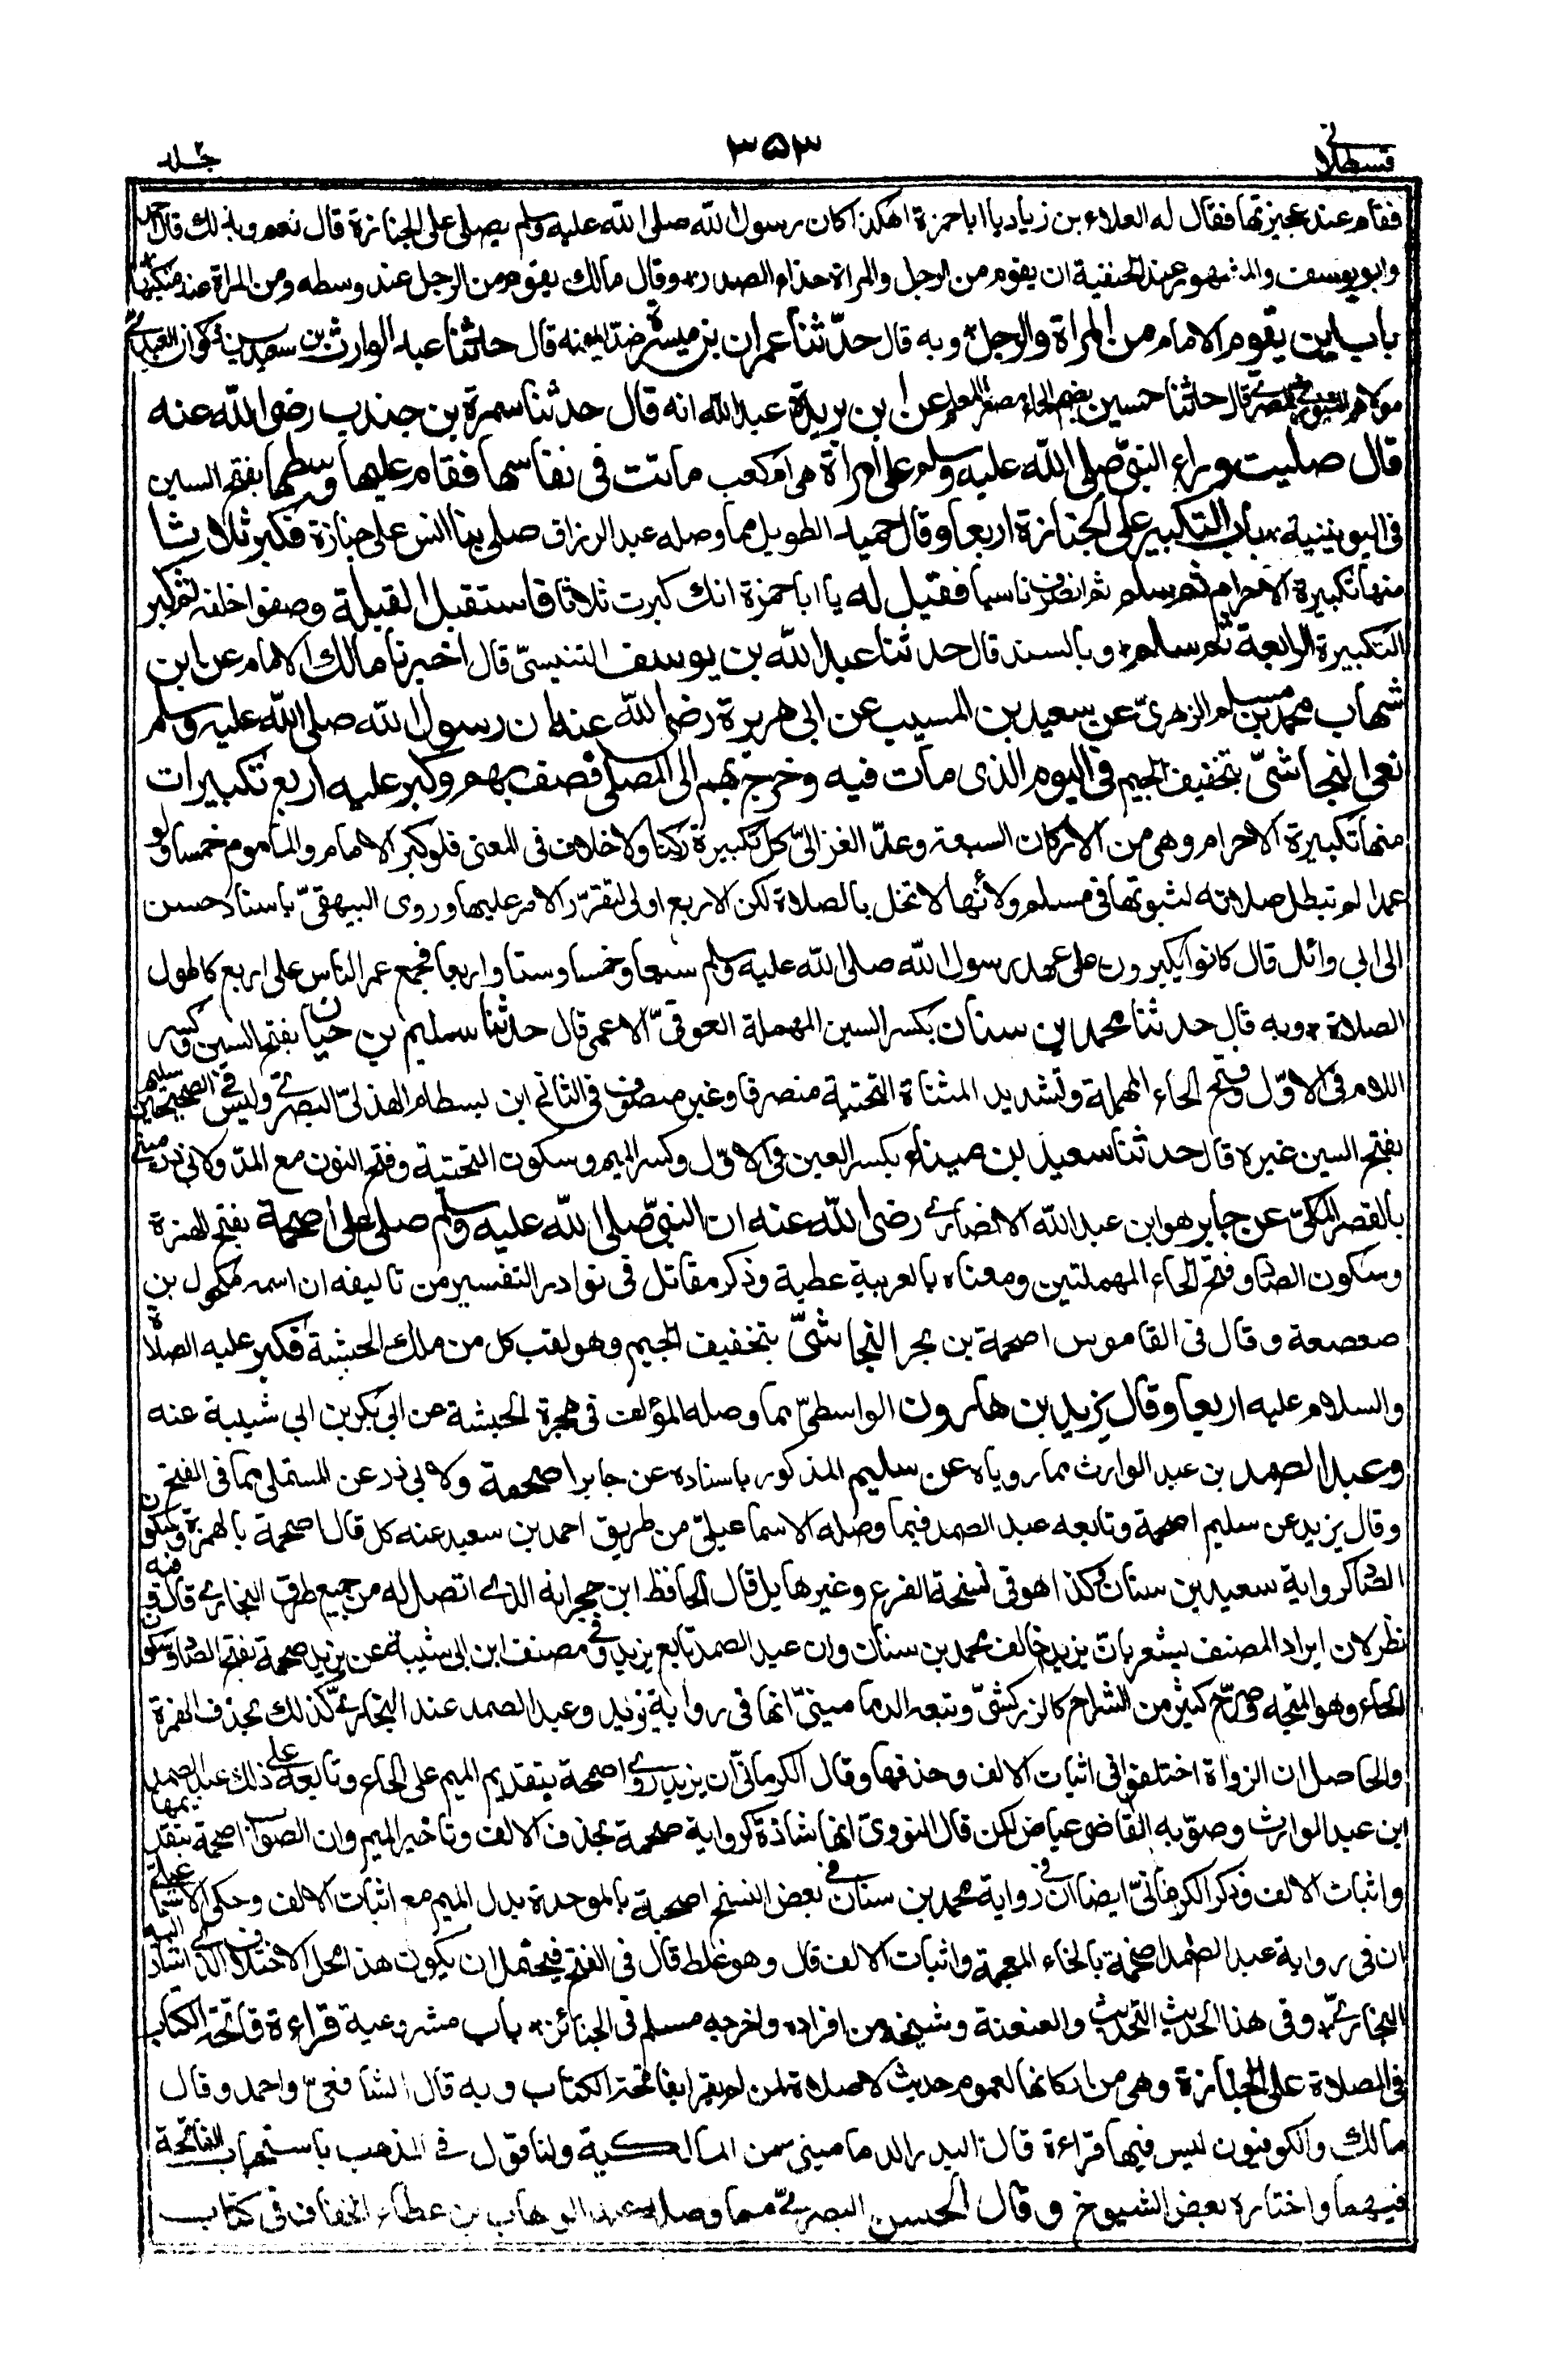 قسطلانی ۳۵۳ جلد ۲
فقام عند عجيزتها فقال له العلاء بن زياد يا ابا حمزة اهكذا كان رسول الله صلى الله عليه وسلم يصلى على الجنازة قال نعم وبذلك قال احمد
وابو يوسف والمشهور عند الحنفية ان يقوم من الرجل والمراة حذاء الصدر وقال مالك يقوم من الرجل عند وسطه ومن المراة عند منكبيها
باب اين يقوم الامام من المراة والرجل وبه قال حدّثنا عمران بن ميسرة ضدّ الميمنة قال حدثنا عبد الوارث بن سعيد بن ذكوان العنبرىّ
مولاهم التنورىّ البصرىّ قال حدثنا حسين بضم الحاء مصغرا المعلم عن ابن بريدة عبد الله انه قال حدثنا سمرة بن جندب رضى الله عنه
قال صليت وراء النبىّ صلى الله عليه وسلم على امراة هى ام كعب ماتت فى نفاسها فقام عليها وسطها بفتح السين
فى اليونينية باب التكبير على الجنازة اربعا وقال حميد الطويل مما وصله عبد الرزاق صلى بنا انس على جنازة فكبر ثلاثا
منها تكبيرة الاحرام ثم سلم ثم انصرف ناسيا فقيل له يا ابا حمزة انك كبرت ثلاثا فاستقبل القبلة وصفوا خلفه ثم كبر
التكبيرة الرابعة ثم سلم وبالسند قال حدثنا عبد الله بن يوسف التنيسىّ قال اخبرنا مالك الامام عن ابن
شهاب محمد بن مسلم الزهرىّ عن سعيد بن المسيب عن ابى هريرة رضى الله عنه ان رسول الله صلى الله عليه وسلم
نعى النجاشىّ بتخفيف الجيم فى اليوم الذى مات فيه وخرج بهم الى المصلى فصف بهم وكبر عليه اربع تكبيرات
منها تكبيرة الاحرام وهى من الاركان السبعة وعدّ الغزالىّ كل تكبيرة ركنا ولا خلاف فى المعنى فلو كبر الامام والماموم خمسا ولو
عمدا لم تبطل صلاته لثبوتها فى مسلم ولأنها لا تخل بالصلاة لكن الاربع اولى لتقرّر الامر عليها وروى البيهقىّ باسناد حسن
الى ابى وائل قال كانوا يكبرون على عهد رسول الله صلى الله عليه وسلم سبعا وخمسا وستا واربعا فجمع عمر الناس على اربع كاطول
الصلاة وبه قال حدثنا محمد بن سنان بكسر السين المهملة العوقىّ الاعمى قال حدثنا سليم بن حيان بفتح السين وكسر
اللام فى الاوّل وفتح الحاء المهملة وتشديد المثناة التحتية منصرفا وغير منصرف فى الثانى ابن بسطام الهذلىّ البصرىّ وليس فى الصحيحين سليم
بفتح السين غيره قال حدثنا سعيد بن ميناء بكسر العين فى الاوّل وكسر الميم وسكون التحتية وفتح النون مع المدّ ولابى ذر مينى
بالقصر المكىّ عن جابر هو ابن عبد الله الانصارى رضى الله عنه ان النبىّ صلى الله عليه وسلم صلى على اصحمة بفتح الهمزة
وسكون الصاد وفتح الحاء المهملتين ومعناه بالعربية عطية وذكر مقاتل فى نوادر التفسير من تاليفه ان اسمه مكحول بن
صعصعة وقال فى القاموس اصحمة بن بحر النجاشىّ بتخفيف الجيم وهو لقب كل من ملك الحبشة فكبر عليه الصلاة
والسلام عليه اربعا وقال يزيد بن هارون الواسطىّ مما وصله المؤلف فى هجرة الحبشة عن ابى بكر بن ابى شيبة عنه
وعبد الصمد بن عبد الوارث مما روياه عن سليم المذكور باسناده عن جابر اصحمة ولابى ذر عن المستملى مما فى الفتح
وقال يزيد عن سليم اصحمة وتابعه عبد الصمد فيما وصله الاسماعيلىّ من طريق احمد بن سعيد عنه كل قال اصحمة بالهمزة وسكون
الصاد كرواية سعيد بن سنان وكذا هو فى نسخة الفرع وغيرها بل قال الحافظ ابن حجر انه الذى اتصل له من جميع طرق البخارى قال وفيه
نظر لان ايراد المصنف يشعر بانّ يزيد خالف محمد بن سنان وان عبد الصمد تابع يزيد وفى مصنف ابن ابى شيبة عن يزيد صحمة بفتح الصاد وسكون
الحاء وهو المتجه وصرّح كثير من الشراح كالزركشىّ وتبعه الدمامينىّ انها فى رواية يزيد وعبد الصمد عند البخارىّ كذلك بحذف الهمزة
والحاصل ان الرواة اختلفوا فى اثبات الالف وحذفها وقال الكرمانىّ ان يزيد روى اصمحة بتقديم الميم على الحاء وتابعه على ذلك عبد الصمد
ابن عبد الوارث وصوّبه القاضى عياض لكن قال النووىّ انها شاذة كرواية صحمة بحذف الالف وتاخير الميم وان الصواب اصحمة بتقديمها
واثبات الالف وذكر الكرمانىّ ايضا ان فى رواية محمد بن سنان فى بعض النسخ اصحبة بالموحدة بدل الميم مع اثبات الالف وحكى الاسماعيلىّ
ان فى رواية عبد الصمد اصخمة بالخاء المعجمة واثبات الالف قال وهو غلط قال فى الفتح فيحتمل ان يكون هذا محل الاختلاف الذى اشار اليه
البخارىّ وفى هذا الحديث التحديث والعنعنة وشيخه من افراده واخرجه مسلم فى الجنائز باب مشروعية قراءة فاتحة الكتاب
فى الصلاة على الجنازة وهى من اركانها لعموم حديث لا صلاة لمن لم يقرا بفاتحة الكتاب وبه قال الشافعىّ واحمد وقال
مالك والكوفيون ليس فيها قراءة قال البدر الدمامينى من المالكية ولنا قول فى المذهب باستحباب الفاتحة
فيهما واختاره بعض الشيوخ وقال الحسن البصرىّ مما وصله عبد الوهاب بن عطاء الخفاف فى كتاب